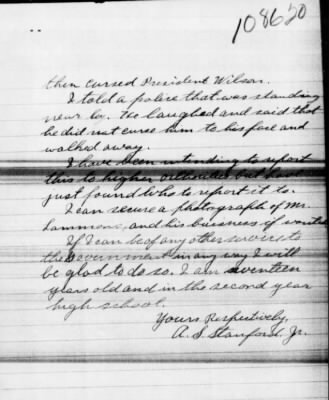 108620
then cursed President Wilson.
I told a police that was standing
near by. He laughed and said that
he did not cures him to his face and
walked away.
I have been intending to report
this to higher but have
just found who to report it to.
I can secure a photograph of Mr.
Hammons, and his business if wanted
If I can be of any other service to
the Government in any way I will
be glad to do so. I am seventeen
years old and in the second year
high school.
Yours Respectively,
A. S. Stanford, Jr.